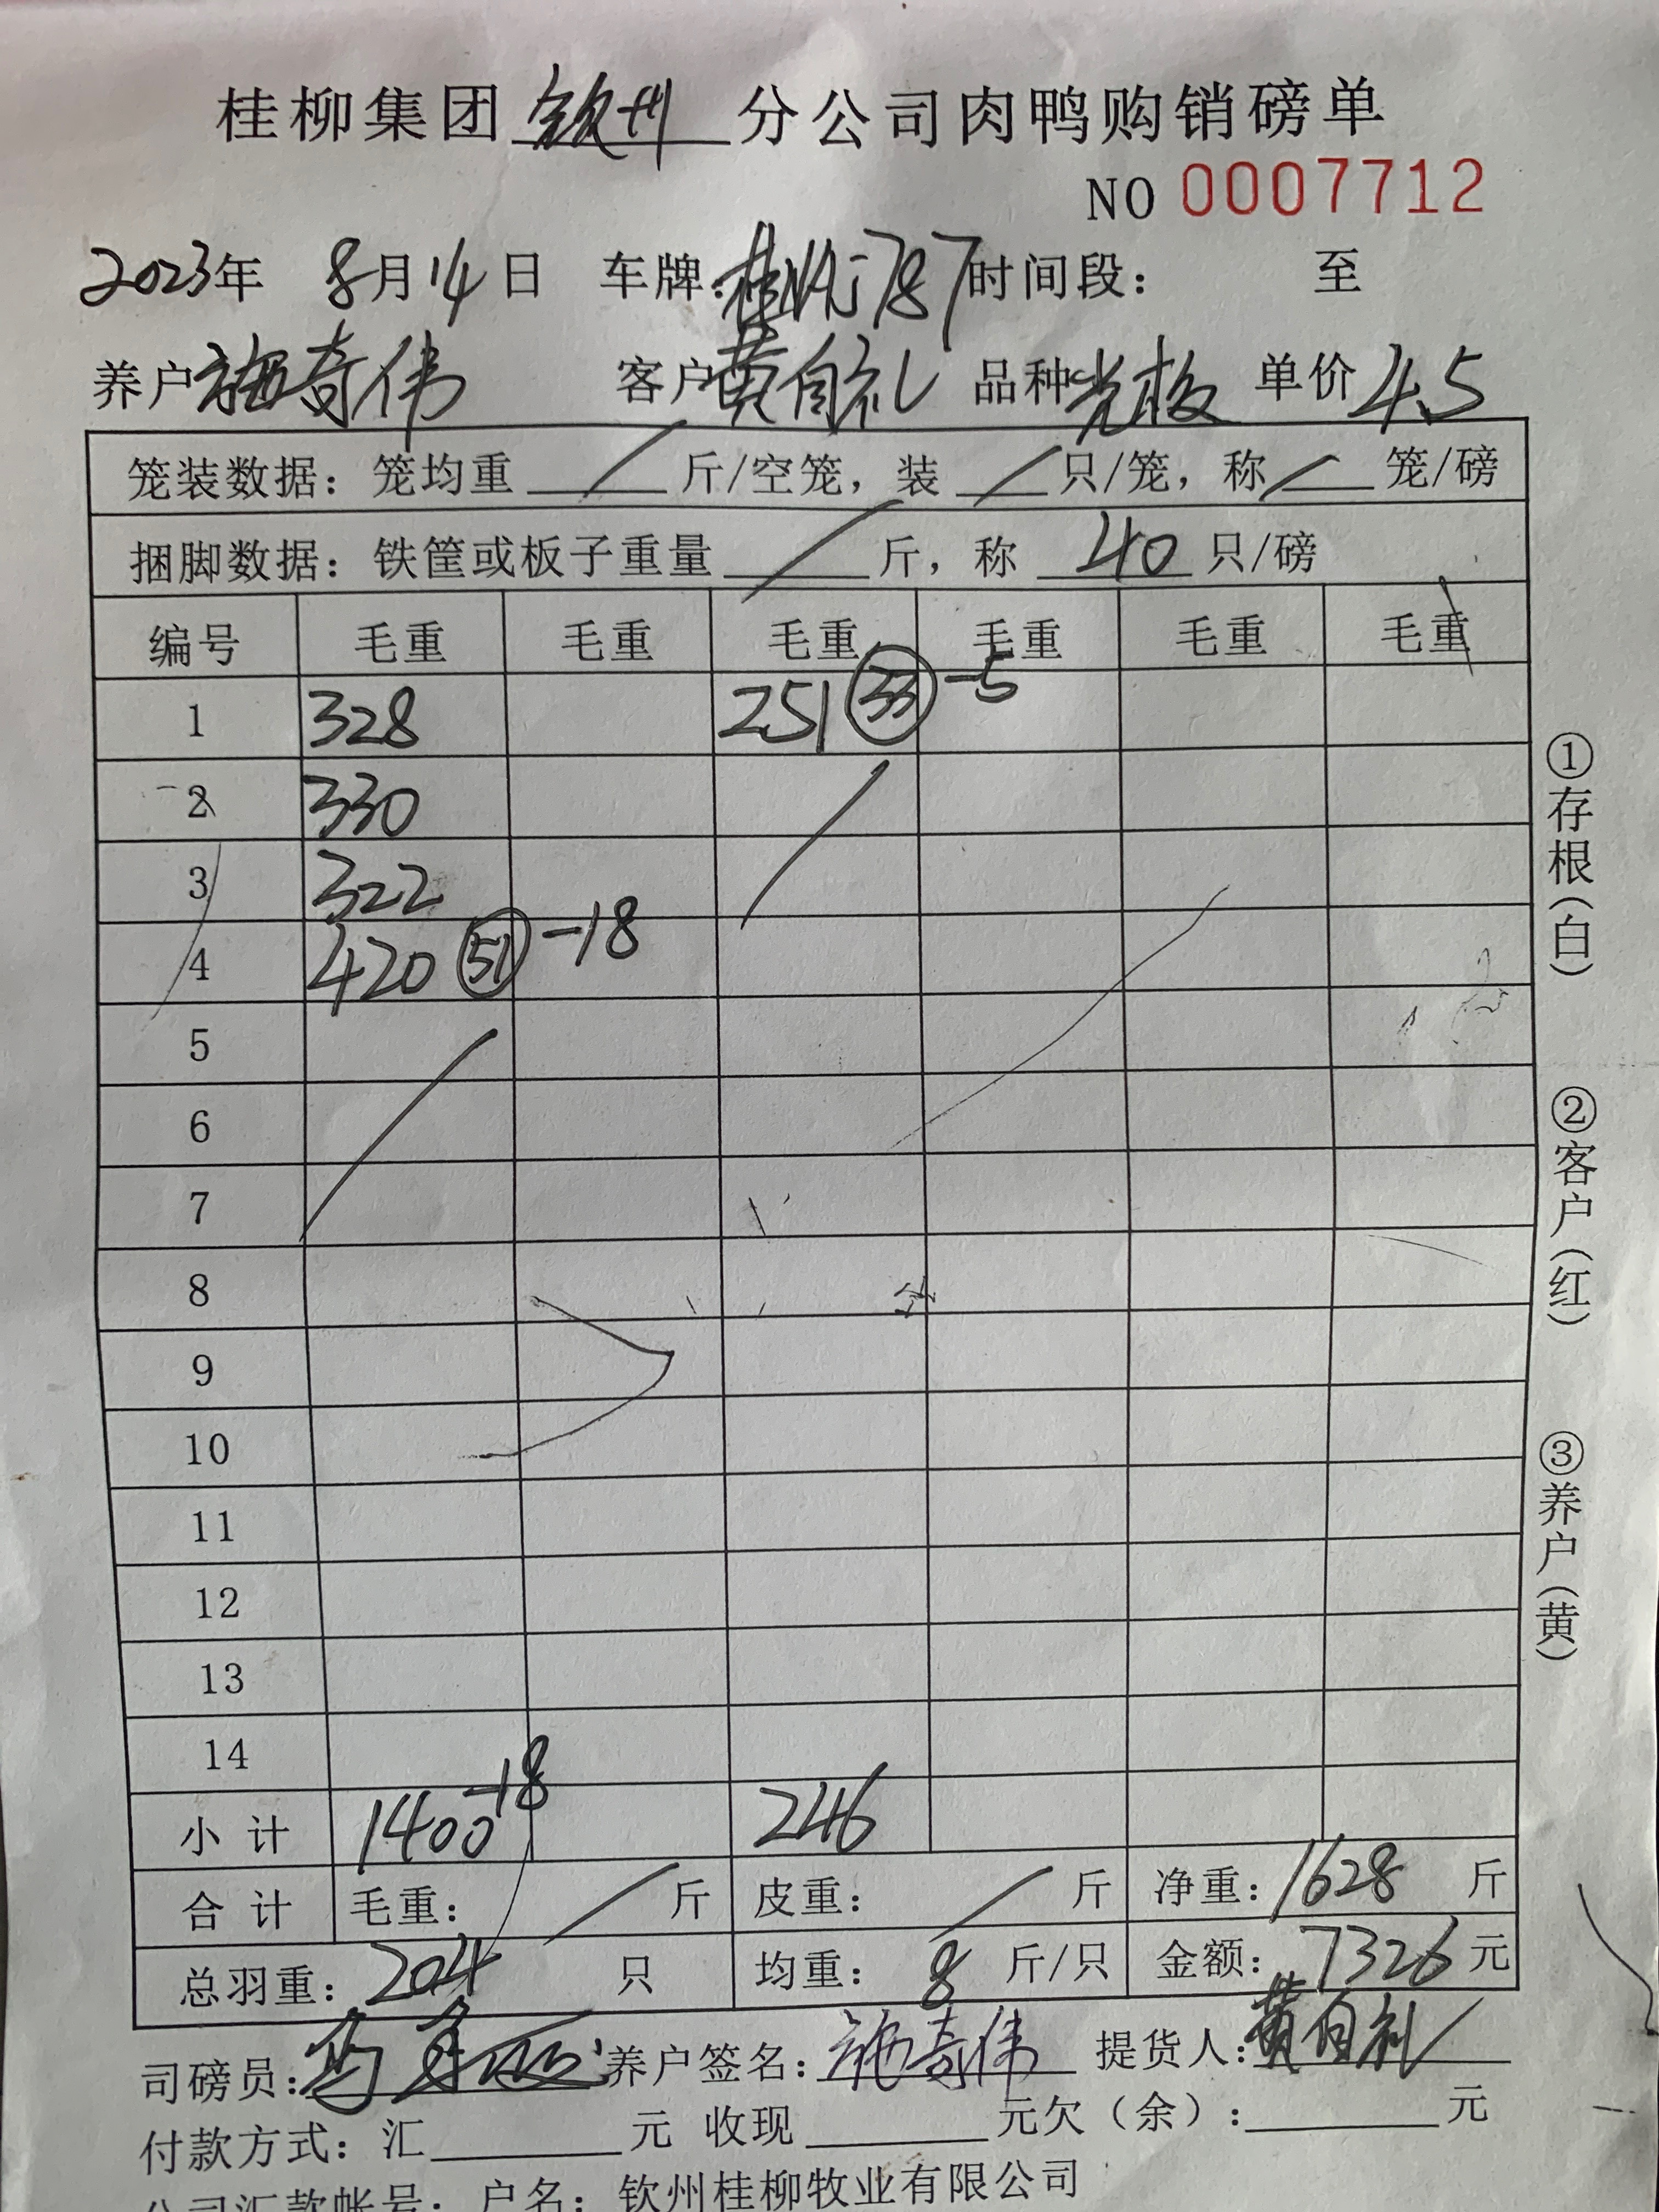 桂柳集团钦州分公司肉鸭购销磅单
NO 0007712
2023年 8月14日 车牌: 787 时间段: 至
养户施奇伟 客户黄自礼 品种光板 单价4.5
笼装数据: 笼均重 / 斤/空笼, 装 / 只/笼, 称 / 笼/磅
捆脚数据: 铁筐或板子重量 / 斤, 称 40 只/磅
编号 毛重 毛重 毛重 毛重 毛重 毛重
1 328 251 33 -5
2 330
3 322
4 420 51 -18
5
6
7
8
9
10
11
12
13
14
小计 1400-18 246
合计 毛重: / 斤 皮重: / 斤 净重: 1628 斤
总羽重: 204 只 均重: 8 斤/只 金额: 7326 元
司磅员: 养户签名: 施奇伟 提货人: 黄自礼
付款方式: 汇 元 收现 元欠(余): 元
公司汇款帐号: 户名: 钦州桂柳牧业有限公司
①存根(白)
②客户(红)
③养户(黄)